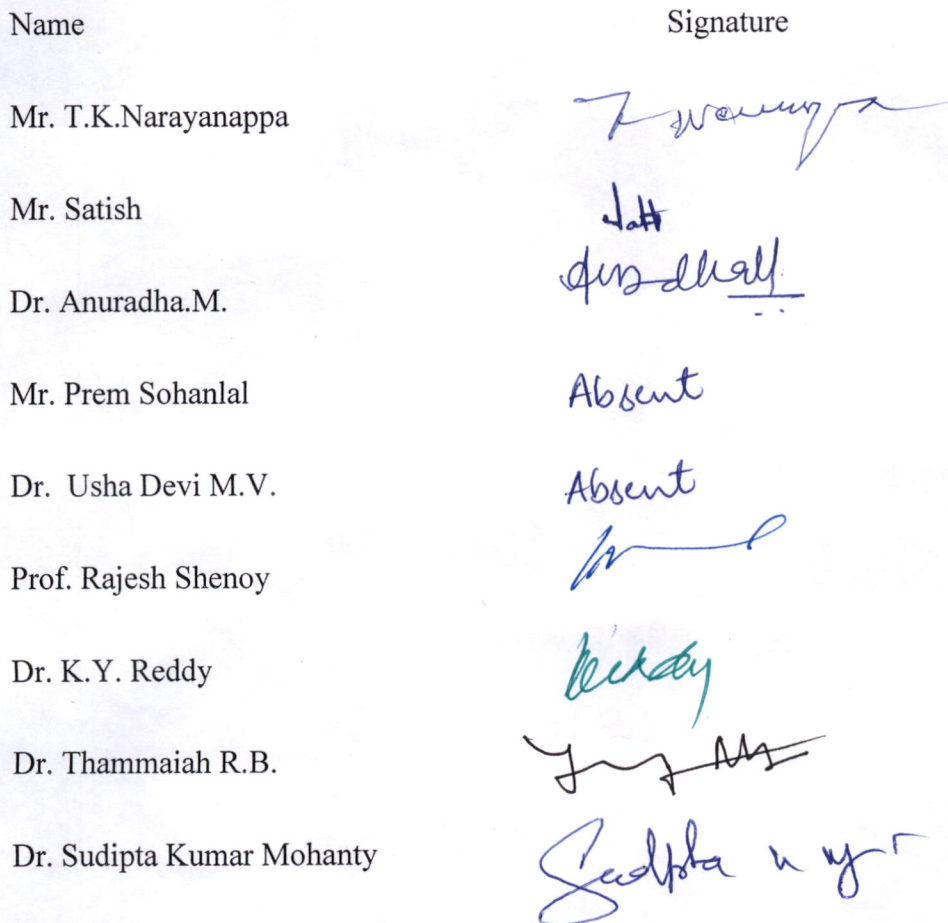 Name Signature
Mr. T.K.Narayanappa
Mr. Satish
Dr. Anuradha.M.
Mr. Prem Sohanlal Absent
Dr. Usha Devi M.V. Absent
Prof. Rajesh Shenoy
Dr. K.Y. Reddy
Dr. Thammaiah R.B.
Dr. Sudipta Kumar Mohanty